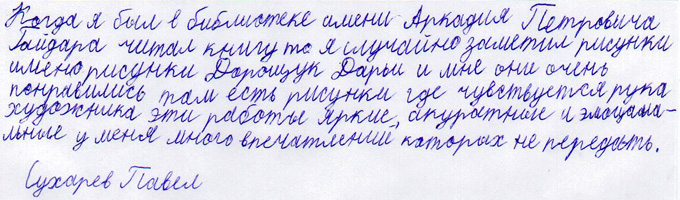 Когда я был в библиотеке имени Аркадия Петровича
Гайдара читал книгу то я случайно заметил рисунки
имено рисунки Дорощук Дарьи и мне они очень
понравились там есть рисунки где чувствуется рука
художника эти работы яркие, акуратные и эмоциона-
льные у меня много впечатлений которых не передать.
Сухарев Павел